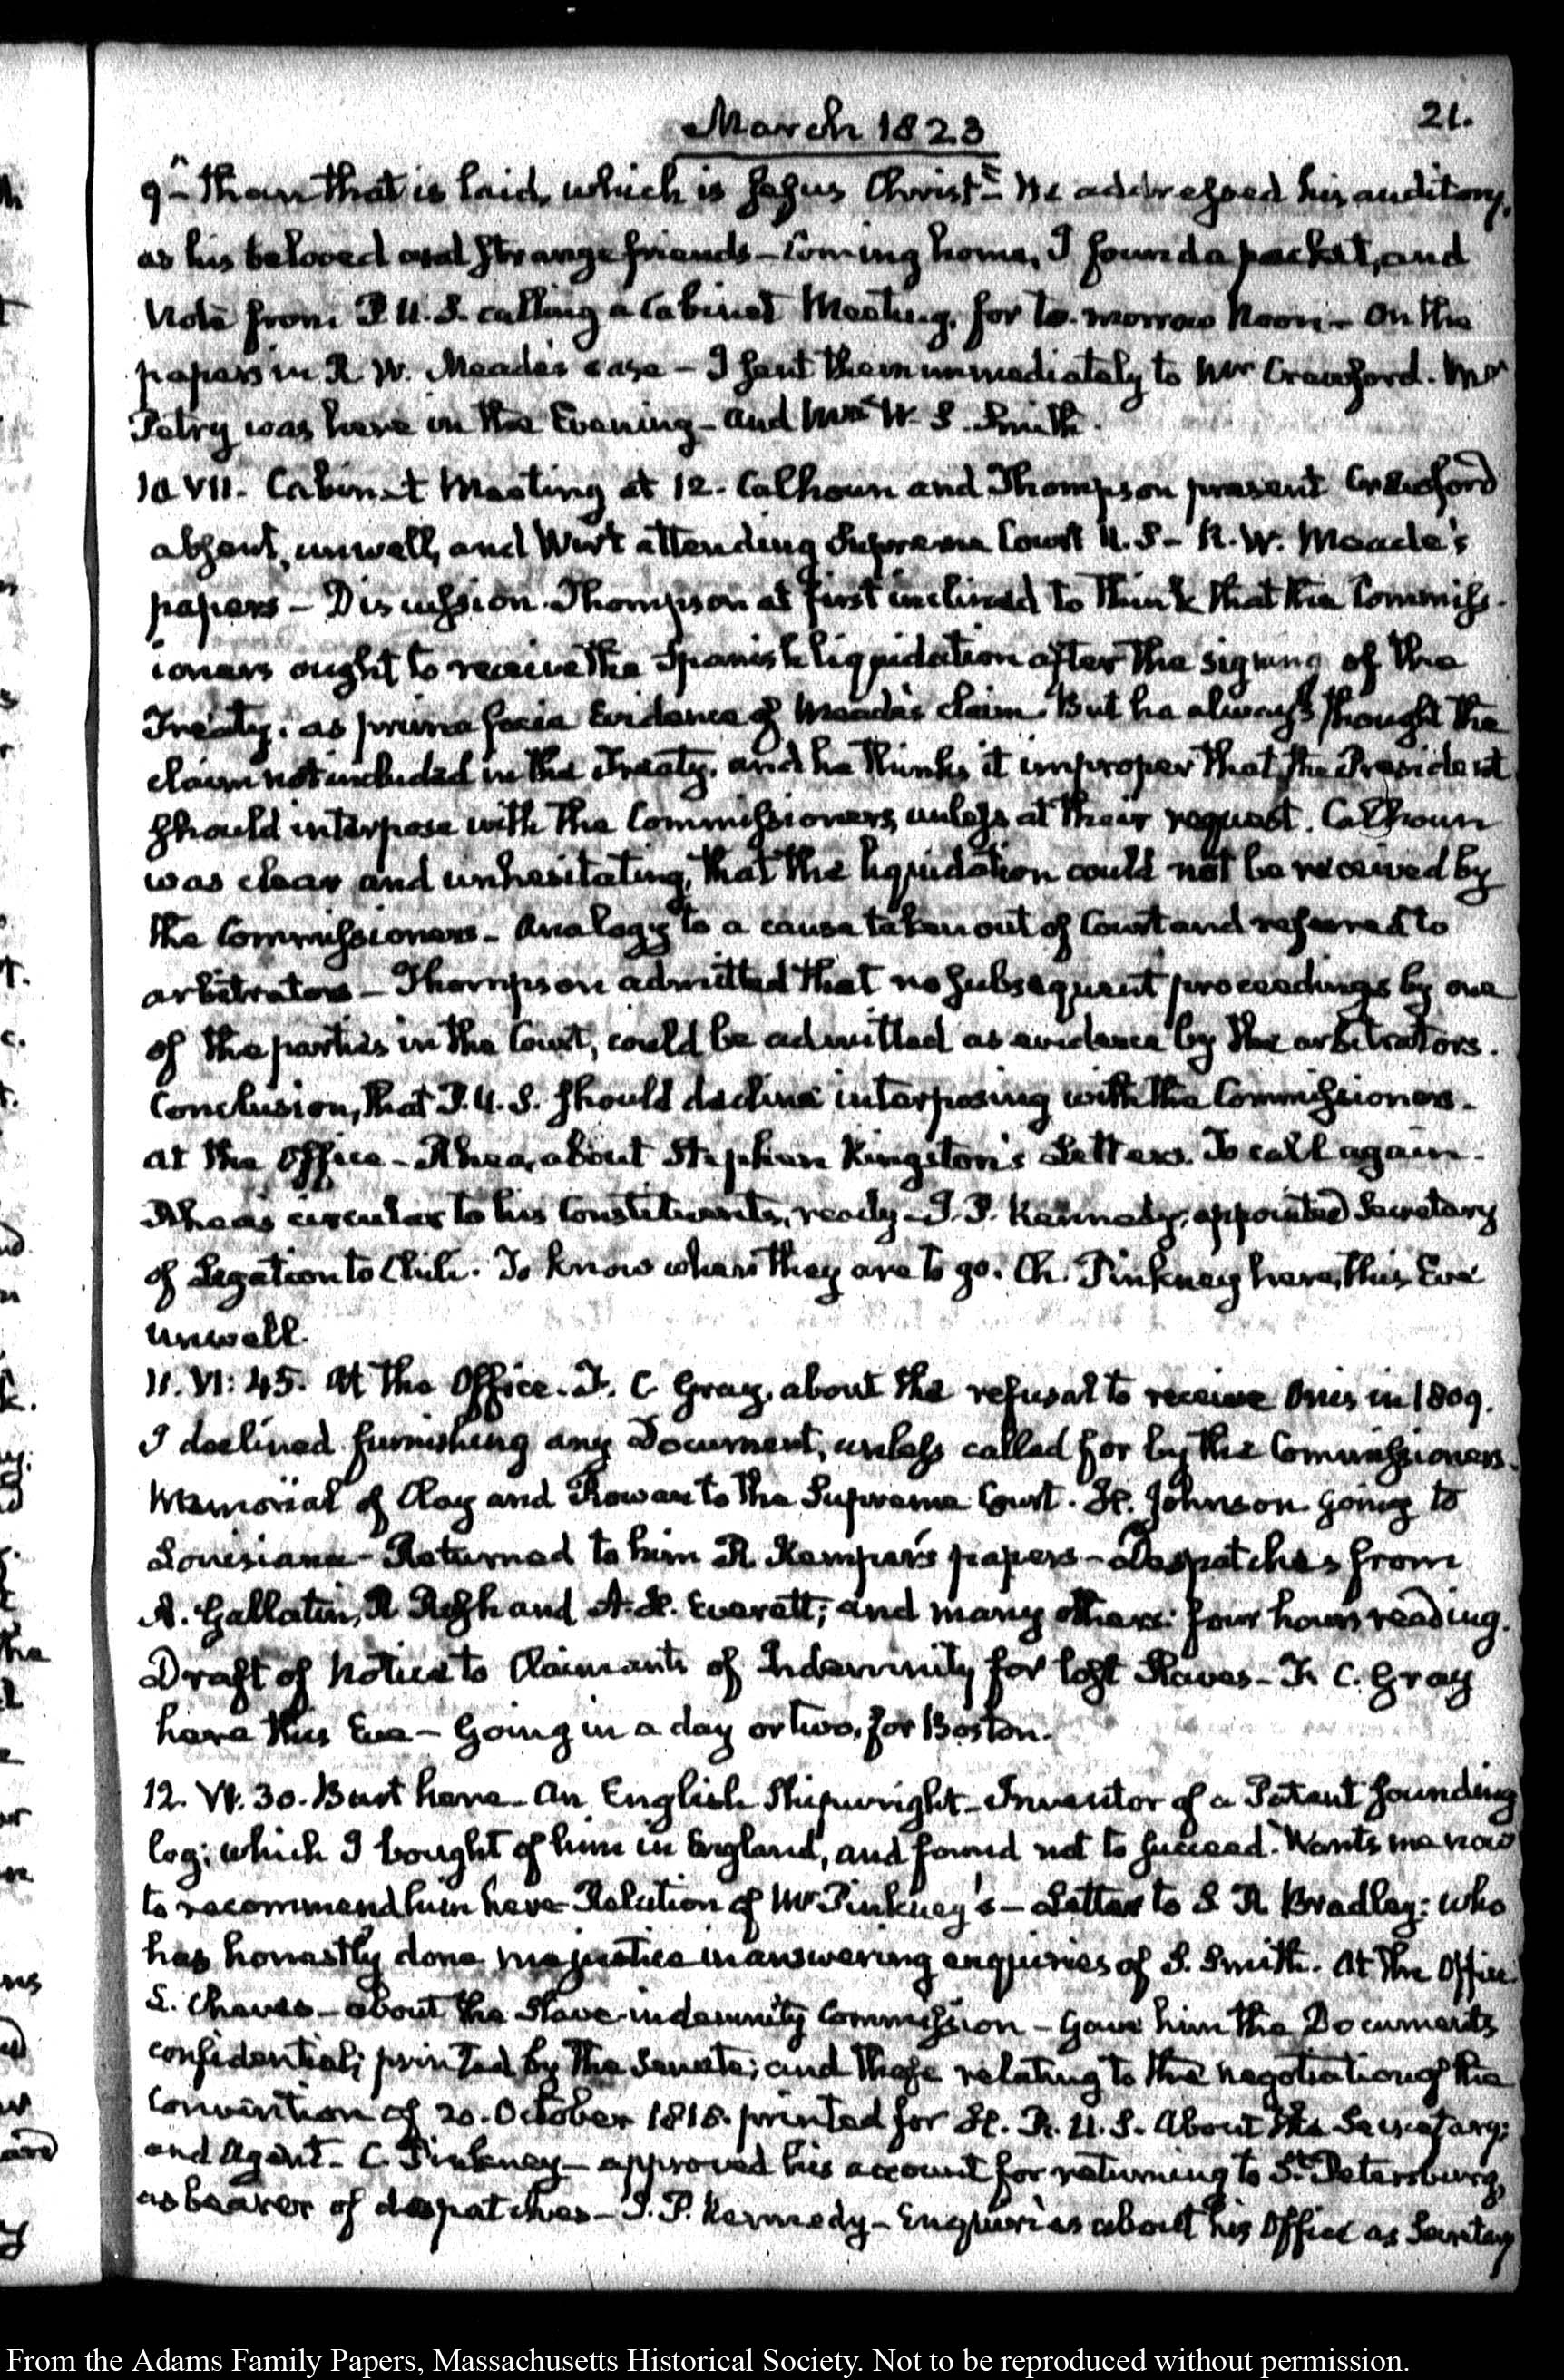 March 1823
21.
9- than that is laid, which is Jesus Christ"- He addressed his auditory,
as his beloved and strange friends - Coming home, I found a packet, and
Note from P.U.S. calling a Cabinet Meeting, for to-morrow Noon - On the
papers in R. W. Meade's case - I sent them immediately to Mr Crawford. Mr
Petry was here in the Evening - and Mrs W. S. Smith.
10. VII. Cabinet Meeting at 12. Calhoun and Thompson present Crawford
absent, unwell, and Wirt attending Supreme Court U.S - R. W. Meade's
papers - Discussion. Thompson at first inclined to think that the Commiss-
ioners ought to receive the Spanish liquidation after the signing of the
Treaty, as prima facie Evidence of Meade's claim. But he always thought the
claim not included in the Treaty, and he thinks it improper that the President
should interpose with the Commissioners, unless at their request. Calhoun
was clear and unhesitating, that the liquidation could not be received by
the Commissioners - Analogy to a cause taken out of Court and referred to
arbitrators - Thompson admitted that no subsequent proceedings by one
of the parties in the Court, could be admitted as evidence by the arbitrators.
Conclusion, that P.U.S. should decline interposing with the Commissioners.
At the Office - Rhea, about Stephen Kingston's Letters. To call again.
Rhea's circular to his Constituents, ready - J. P. Kennedy, appointed Secretary
of Legation to Chili. To know when they are to go. Ch. Pinkney here, this Eve
unwell.
11. VI: 45. At the Office. F. C. Gray, about the refusal to receive Onis in 1809.
I declined furnishing any Document, unless called for by the Commissioners.
Memorial of Clay and Rowan to the Supreme Court. H. Johnson going to
Louisiana - Returned to him R Kemper's papers - Despatches from
A. Gallatin, R Rush and A. H. Everett; and many others: four hours reading.
Draft of Notice to Claimants of Indemnity for lost Slaves - F. C. Gray
here this Eve - Going in a day or two, for Boston.
12. VI. 30. Burt here - An English Shipwright - Inventor of a Patent sounding
log; which I bought of him in England, and found not to succeed. Wants me now
to recommend him here - Relation of Mr Pinkney's - Letter to S R Bradley: who
has honestly done me justice in answering enquiries of S. Smith. At the Office
L. Cheves - about the Slave-indemnity Commission - Gave him the Documents
confidential; printed by the Senate; and those relating to the negotiation of the
Convention of 20. October 1818. printed for H. R. U. S. About the Secretary;
and Agent - C. Pinkney - approved his account for returning to St Petersburg,
as bearer of despatches - J. P. Kennedy - Enquiries about his Office as Secretary
From the Adams Family Papers, Massachusetts Historical Society. Not to be reproduced without permission.